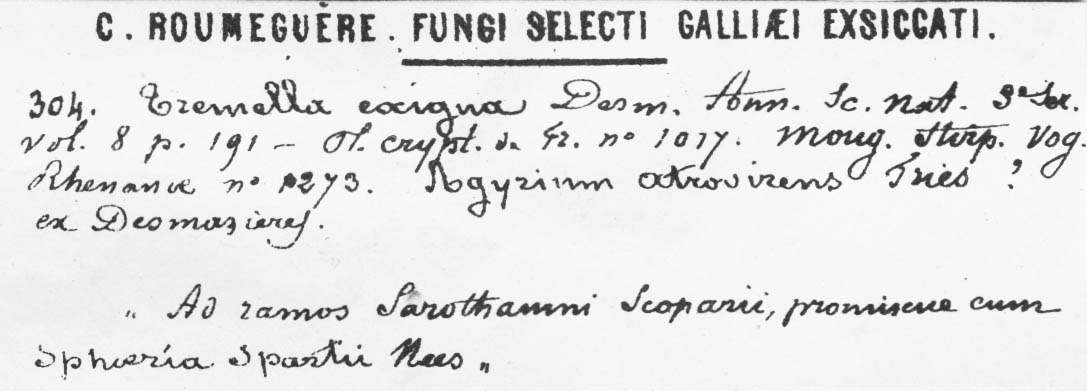 C. ROUMEGUÈRE. FUNGI SELECTI GALLIÆI EXSICCATI.
304. Tremella exigua Desm. Ann. Sc. nat. 3e Ser.
vol. 8 p. 191 – Pl. crypt. de Fr. no 1017. Moug. Stirp. Vog.
Rhenanae no 1273. Agyrium atrovirens Fries ?
ex Desmazieres.
„ Ad ramos Sarothamni Scoparii, promiscue cum
Sphæria Spartii Nees „